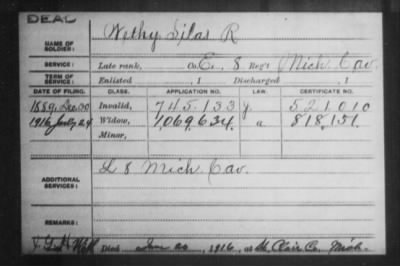 DEAL
NAME OF SOLDIER: Withy, Silas R
SERVICE: Late rank, Co. E, 8 Reg't Mich. Cav.
TERM OF SERVICE: Enlisted , 1 Discharged , 1
DATE OF FILING. CLASS. APPLICATION NO. LAW. CERTIFICATE NO.
1889, Dec. 30 Invalid, 745.133 y. 521.010
1916, July 24 Widow, 1.069.634. a 818.151.
Minor,
ADDITIONAL SERVICES: L 8 Mich. Cav.
REMARKS:
Died June 20, 1916, at St. Clair Co. Mich.